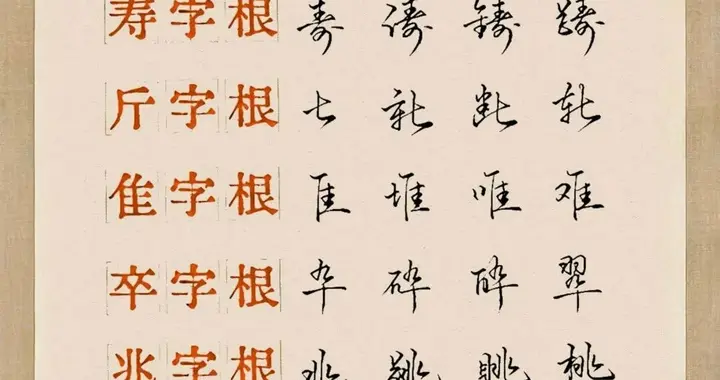 寿字根 寿 涛 铸 踌
斤字根 斤 新 断 斩
隹字根 隹 堆 唯 难
卒字根 卒 碎 醉 翠
兆字根 兆 跳 眺 桃